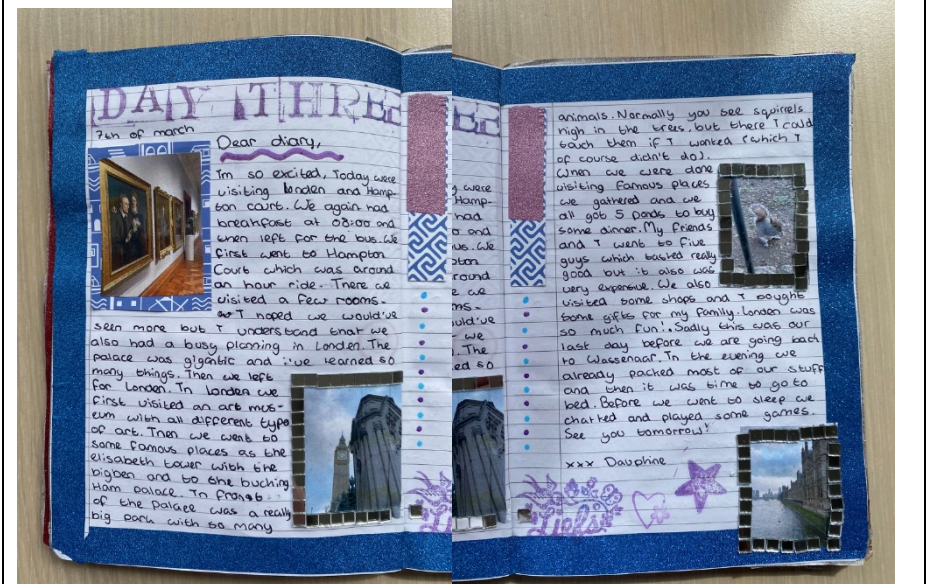 DAY THREE
7th of march
Dear diary,
I'm so excited, Today were
visiting Londen and Hamp-
ton court. We again had
breakfast at 08:00 and
then left for the bus. We
first went to Hampton
Court which was around
an hour ride. There we
visited a few rooms.
I hoped we would've
seen more but I understand that we
also had a busy planning in Londen. The
palace was gigantic and i've learned so
many things. Then we left
for Londen. In londen we
first visited an art mus-
eum with all different type
of art. Then we went to
some famous places as the
elisabeth tower with the
bigben and to the buching
Ham palace. In front
of the palace was a really
big park with so many
y were
Hamp-
had
o and
us. We
pton
round
e we
ms.
ould've
we
. The
ed so
animals. Normally you see squirrels
high in the trees, but there I could
touch them if I wanted (which I
of course didn't do).
When we were done
visiting famous places
we gathered and we
all got 5 ponds to buy
some dinner. My friends
and I went to five
guys which tasted really
good but it also was
very expensive. We also
visited some shops and I bought
some gifts for my family. Londen was
so much fun! Sadly this was our
last day before we are going back
to Wassenaar. In the evening we
already packed most of our stuff
and then it was time to go to
bed. Before we went to sleep we
chatted and played some games.
See you tomorrow!
xxx Dauphine
Liefs